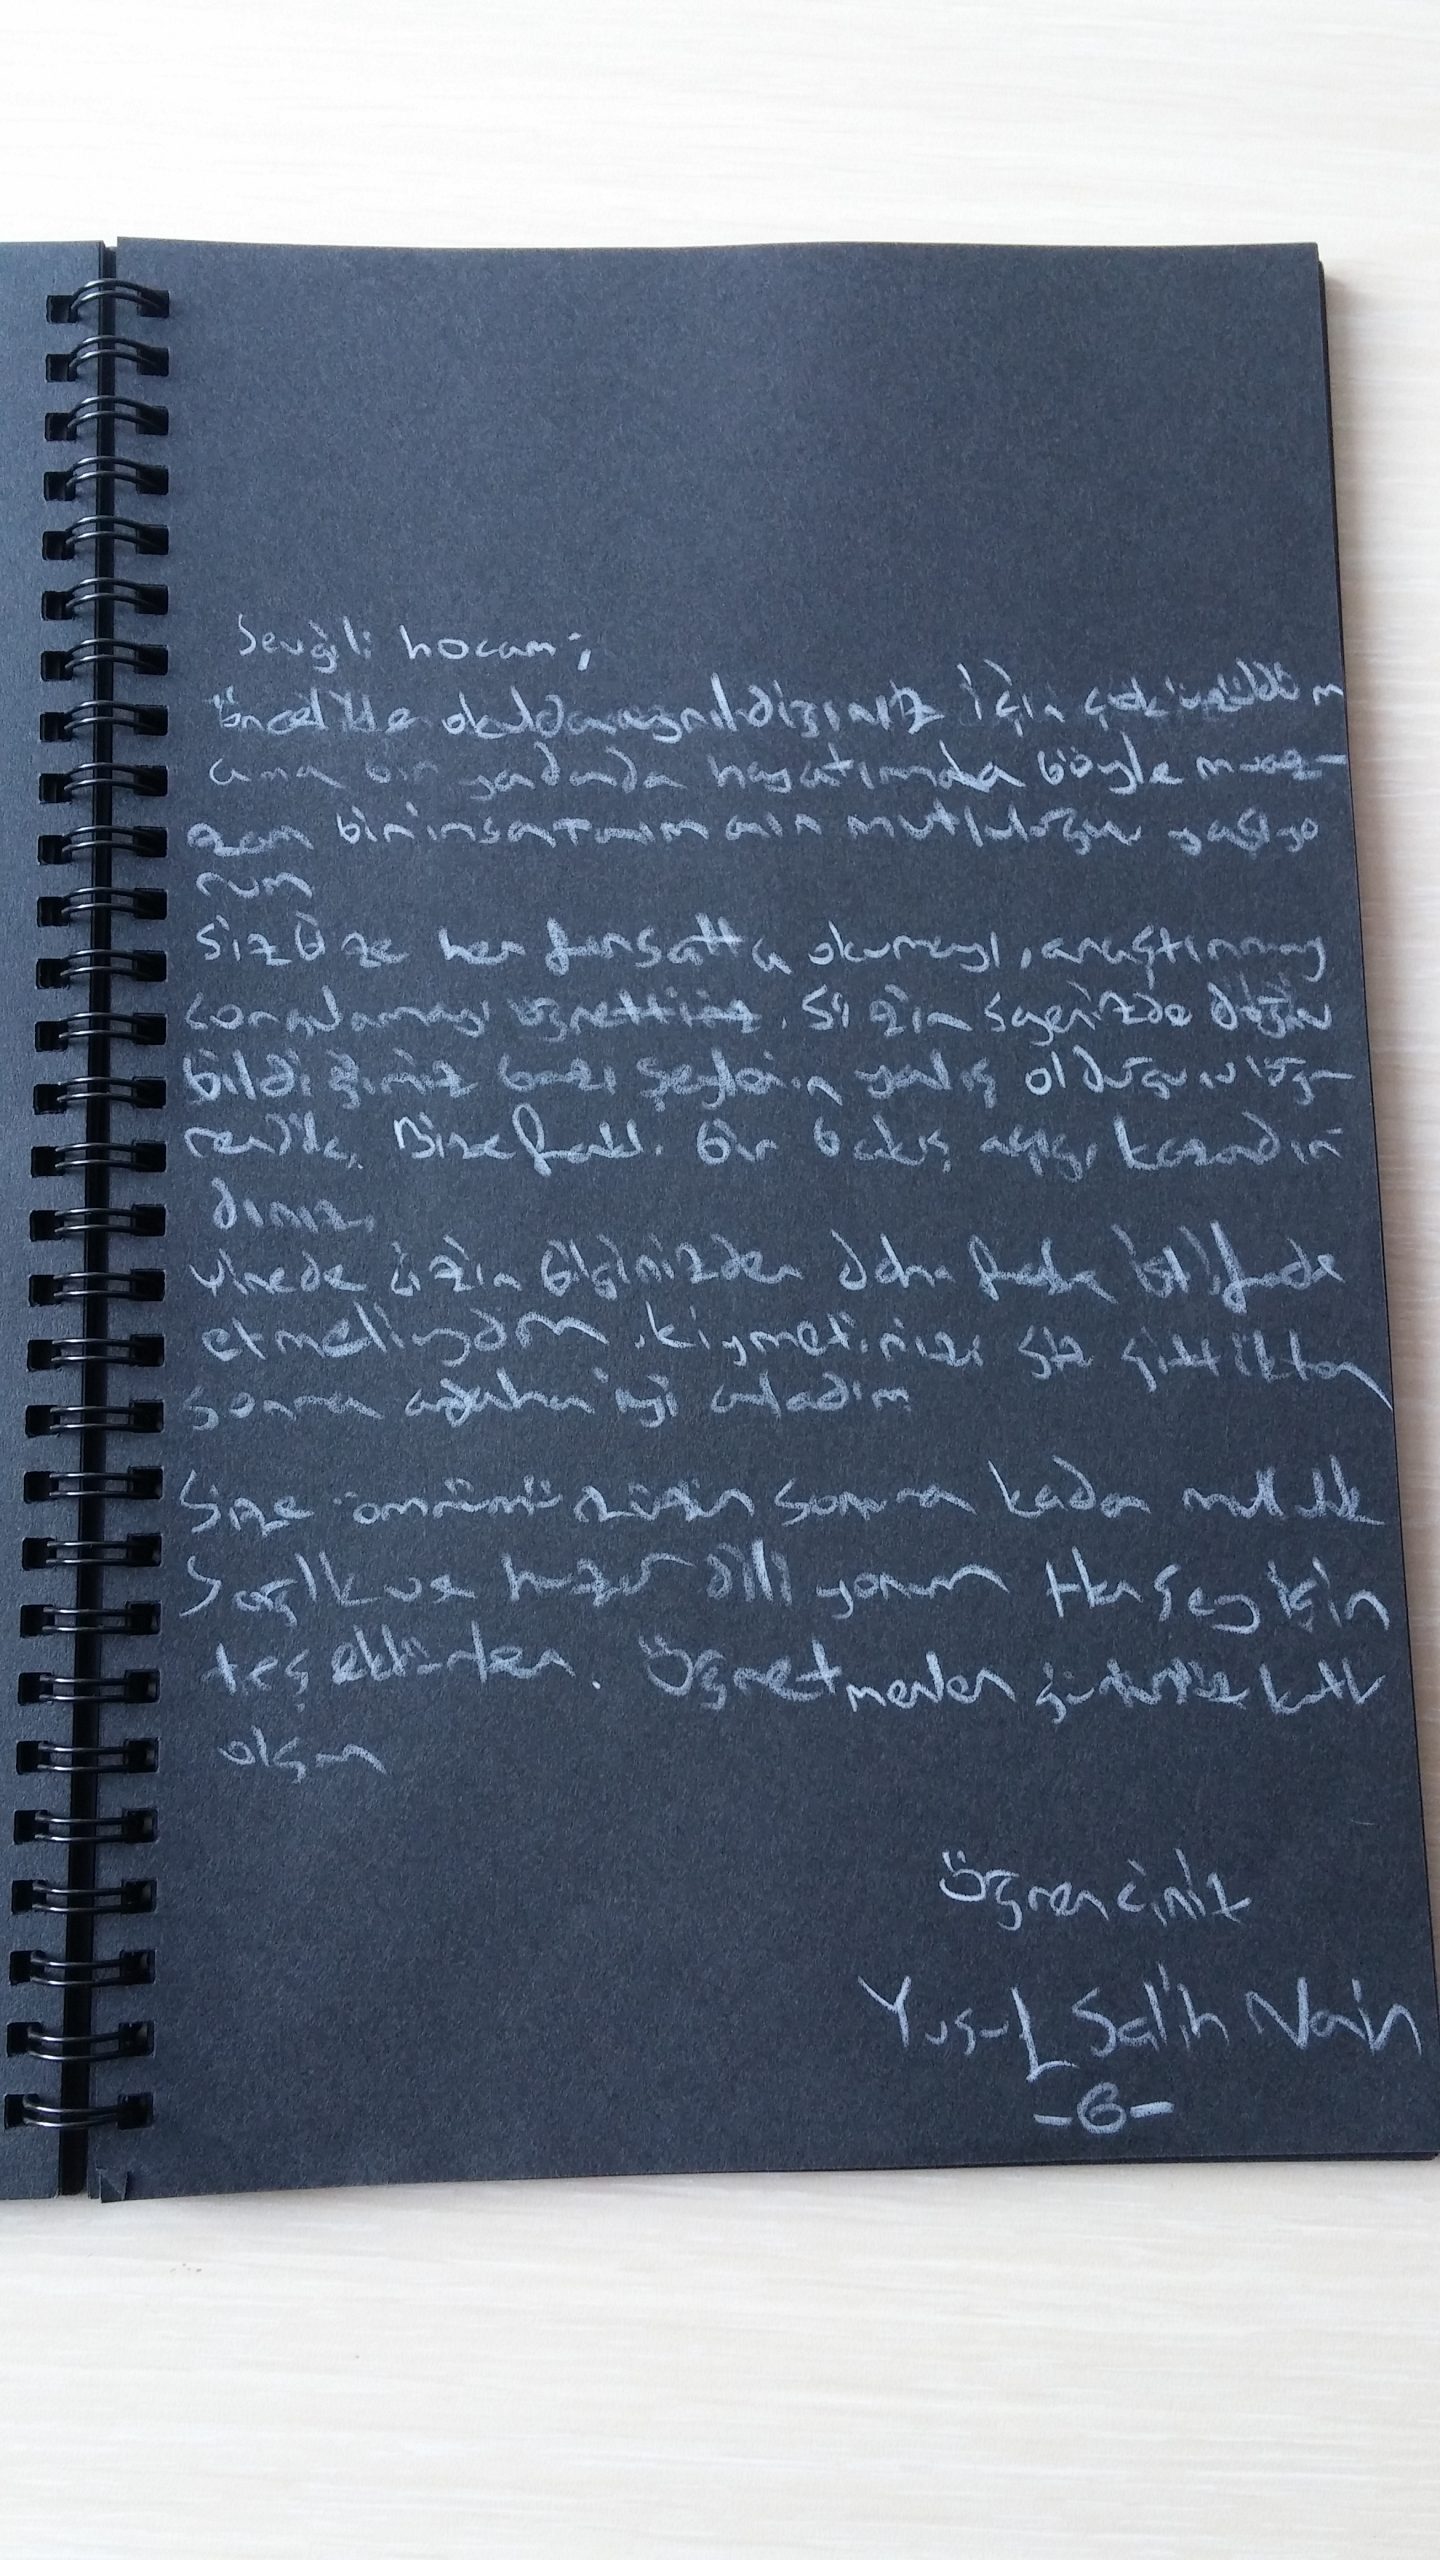 Sevgili hocam;
öncelikle okuldan ayrıldığınız için çok üzüldüm
ama bir yandanda hayatımda böyle muaz-
zam bir insan mutluluğu yaşıyo
rum
Siz bize her fırsatta okumayı, araştırmayı
sorgulamayı öğrettiniz. Sizin sayenizde doğru
bildiğimiz bazı şeylerin yanlış olduğunu öğ
rendik. Bize farklı bir bakış açışı kazandır
dınız.
Yinede sizin bilginizden daha fazla istifade
etmeliydim. kiymetinizi siz gittikten
sonra daha iyi anladım
Size ömrünüzün sonuna kadar mutluluk
Sağlık ve huzur dili yorum Her şey için
teşekkürler. Öğretmenler gününüz kutlu
olsun
Öğrenciniz
Yusuf Salih Nain
-6-